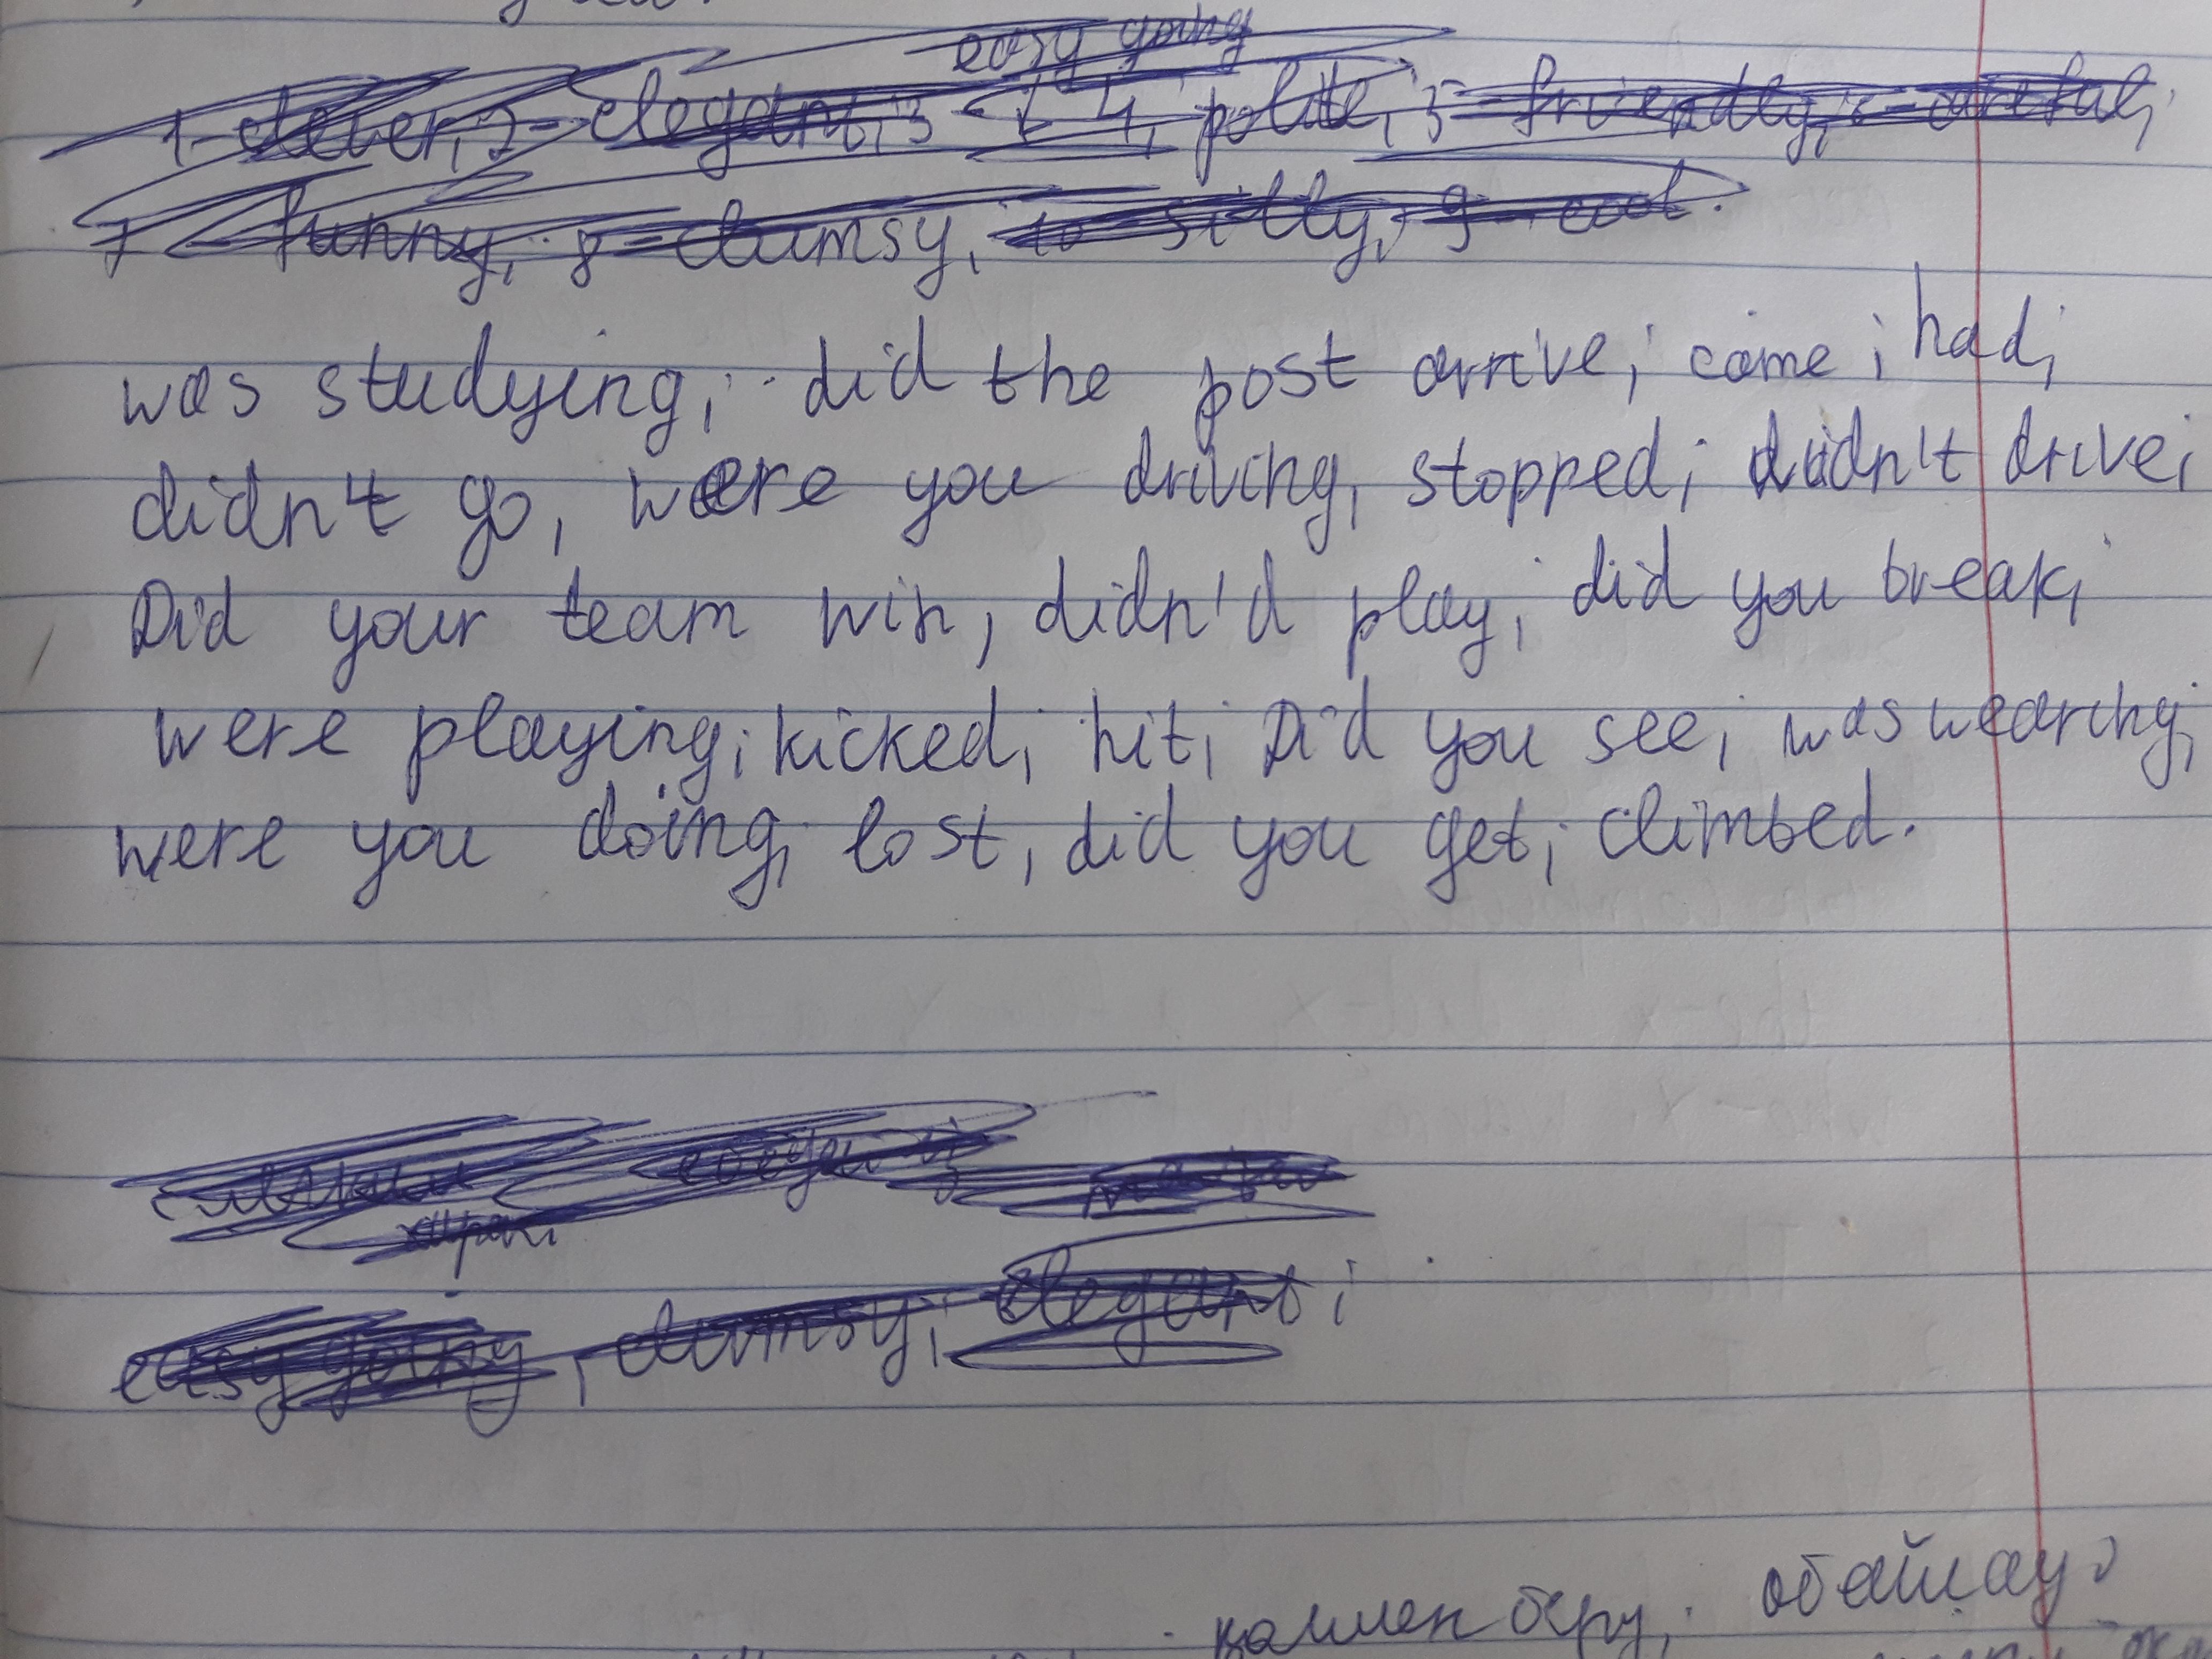 easy going
1-clever, 2-elegant, 3-↓ 4, polite, 5-friendly, 6-careful,
7-funny, 8-clumsy, 10-silly, 9-cool.
was studying, did the post arrive, came, had,
didn't go, were you driving, stopped, didn't drive,
Did your team win, didn'd play, did you break,
were playing, kicked, hit, Did you see, was wearing,
were you doing, lost, did you get, climbed.
easy going, clumsy, elegant,
қолмен беру, абайлау